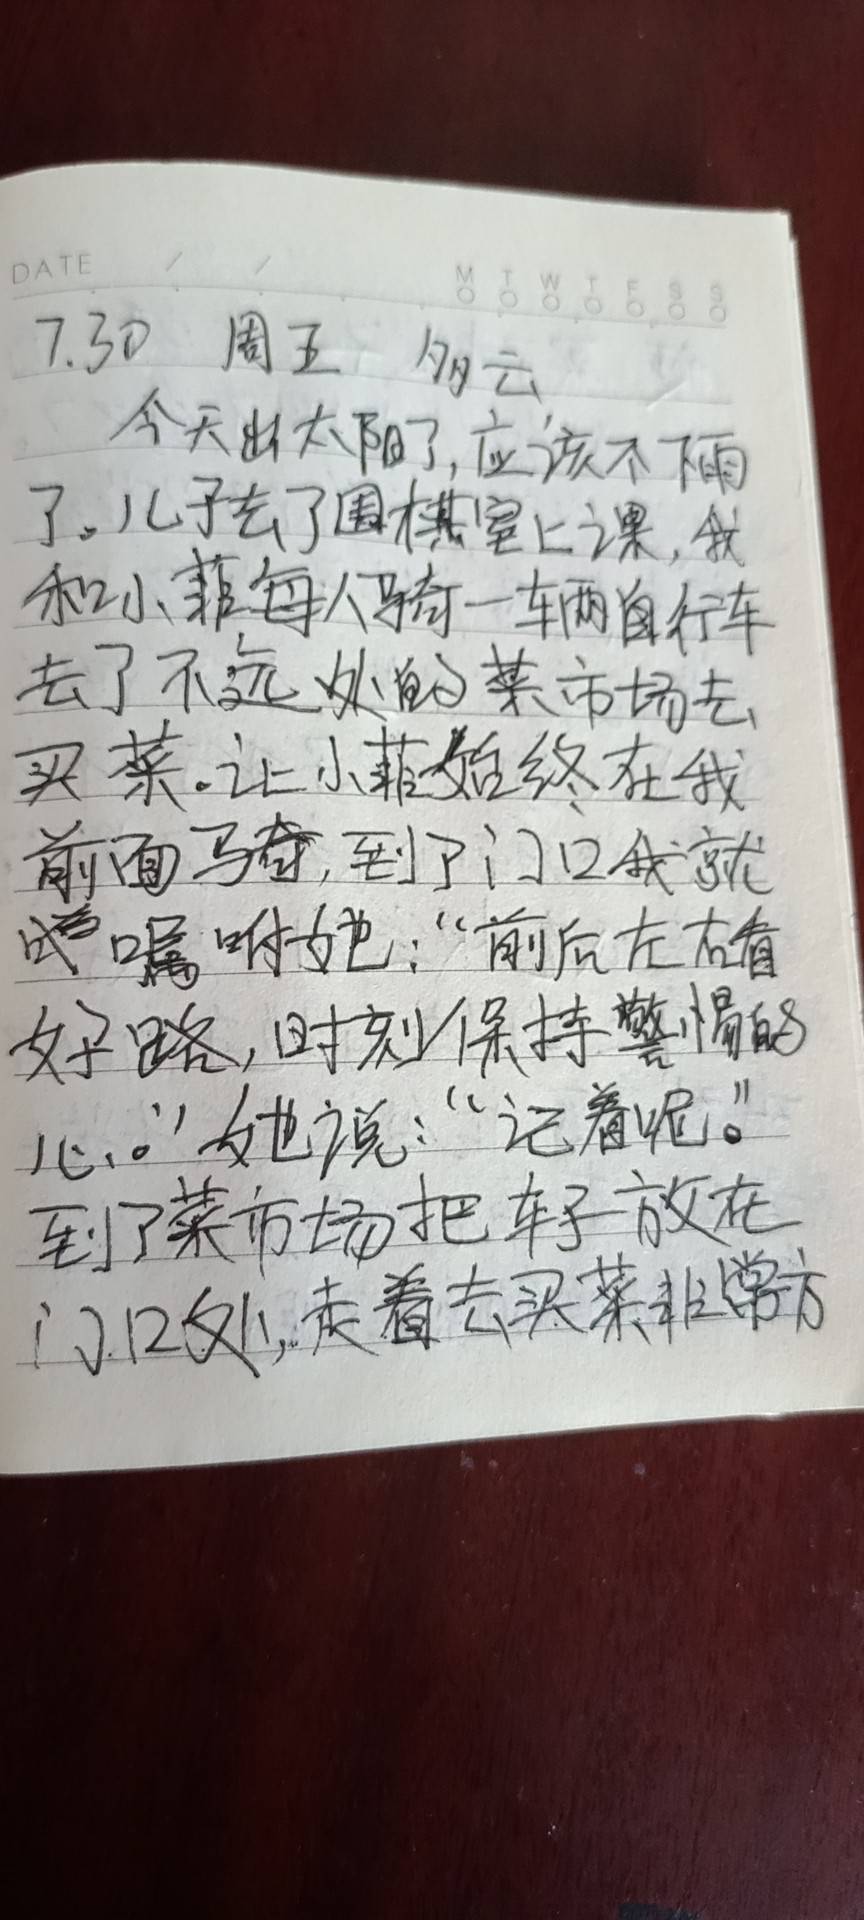 DATE / /
M T W T F S S
7.30 周五 多云
今天出太阳了,应该不下雨
了。儿子去了围棋室上课,我
和小菲每人骑一辆自行车
去了不远处的菜市场去
买菜。让小菲始终在我
前面骑,到了门口我就
嘱咐她:“前后左右看
好路,时刻保持警惕的
心。”她说:“记着呢。”
到了菜市场把车子放在
门口处,走着去买菜非常方